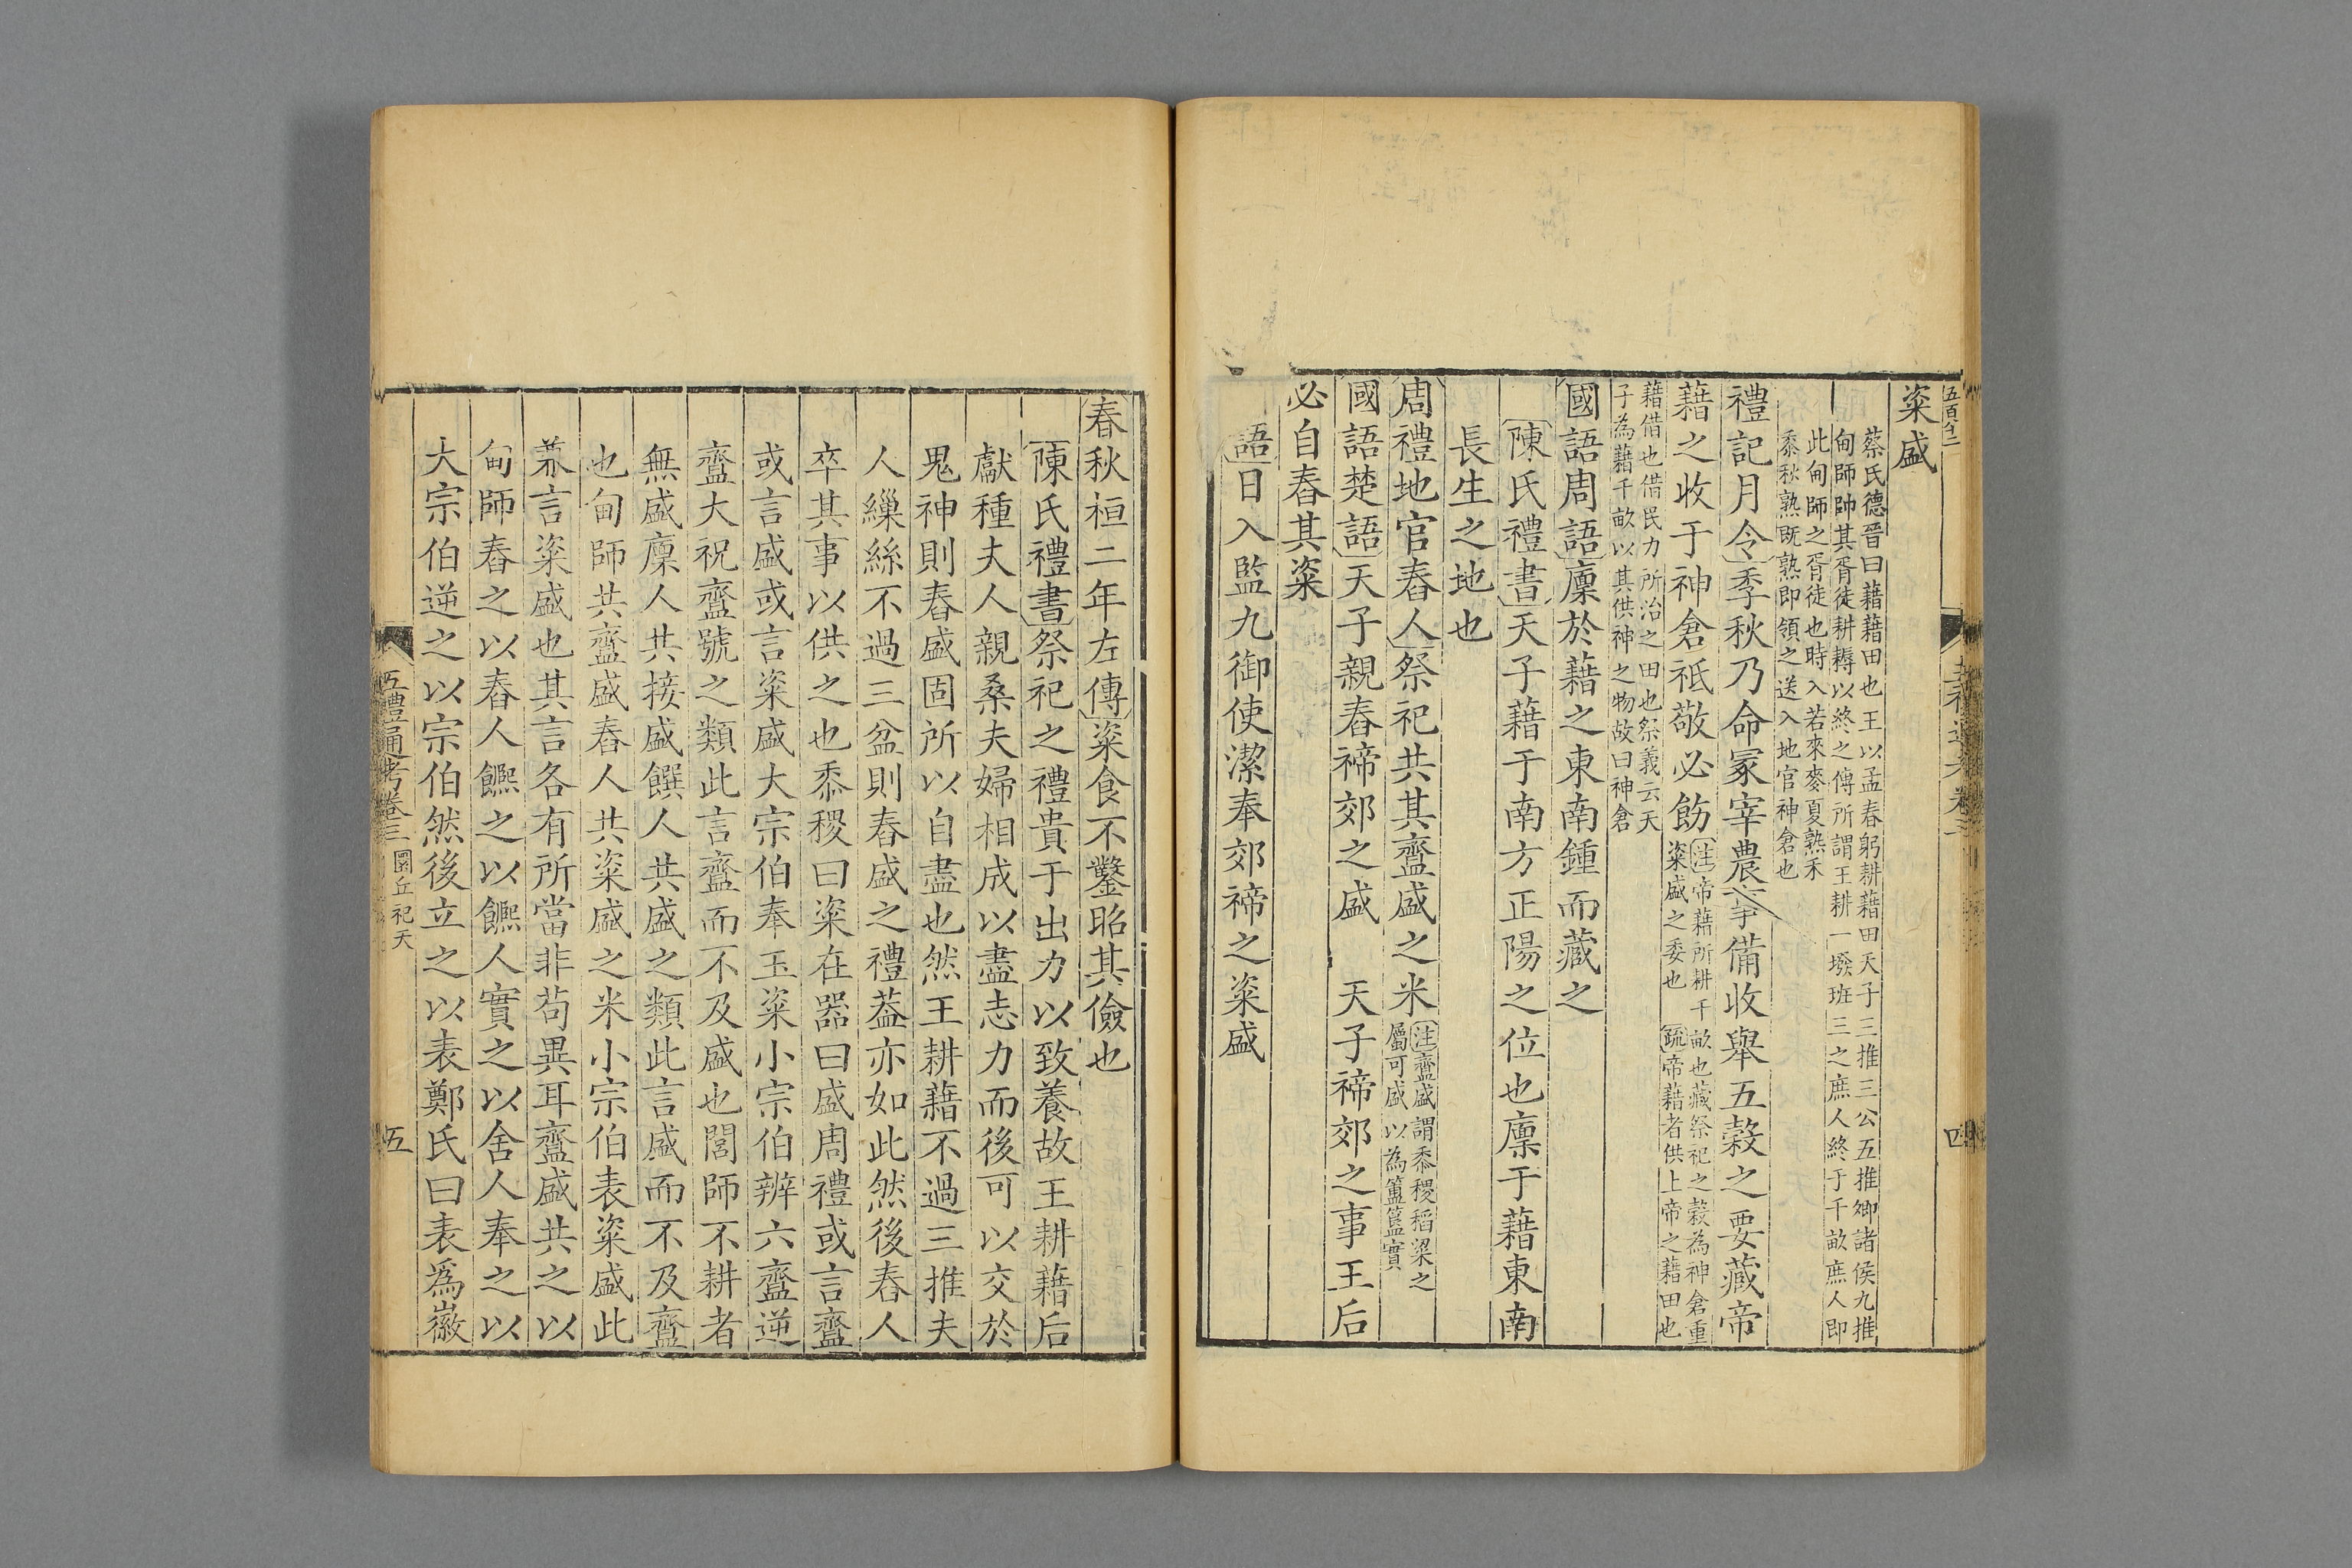 五百
粢盛
蔡氏德晉曰藉藉田也王以孟春躬耕藉田天子三推三公五推卿諸侯九推
甸師帥其胥徒耕耨以終之傳所謂王耕一墢班三之庶人終于千畝庶人即
此甸師之胥徒也時入若來麥夏熟禾
黍秋熟旣熟即領之送入地官神倉也
禮記月令季秋乃命冢宰農事備收舉五穀之要藏帝
藉之收于神倉祗敬必飭
注帝藉所耕千畝也藏祭祀之穀為神倉重
粢盛之委也疏帝藉者供上帝之藉田也
藉借也借民力所治之田也祭義云天
子為藉千畝以其供神之物故曰神倉
國語周語廩於藉之東南鍾而藏之
陳氏禮書天子藉于南方正陽之位也廩于藉東南
長生之地也
周禮地官舂人祭祀共其齍盛之米
注齍盛謂黍稷稻粱之
屬可盛以為簠簋實
國語楚語天子親舂禘郊之盛 天子禘郊之事王后
必自舂其粢
語日入監九御使潔奉郊禘之粢盛
四
春秋桓二年左傳粢食不鑿昭其儉也
陳氏禮書祭祀之禮貴于出力以致養故王耕藉后
獻種夫人親桑夫婦相成以盡志力而後可以交於
鬼神則舂盛固所以自盡也然王耕藉不過三推夫
人繅絲不過三盆則舂盛之禮葢亦如此然後舂人
卒其事以供之也黍稷曰粢在器曰盛周禮或言齍
或言盛或言粢盛大宗伯奉玉粢小宗伯辨六齍逆
齍大祝齍號之類此言齍而不及盛也閭師不耕者
無盛廩人共接盛饌人共盛之類此言盛而不及齍
也甸師共齍盛舂人共粢盛之米小宗伯表粢盛此
兼言粢盛也其言各有所當非苟異耳齍盛共之以
甸師舂之以舂人饎之以饎人實之以舍人奉之以
大宗伯逆之以宗伯然後立之以表鄭氏曰表爲徽
五禮通考卷三 圜丘祀天
五